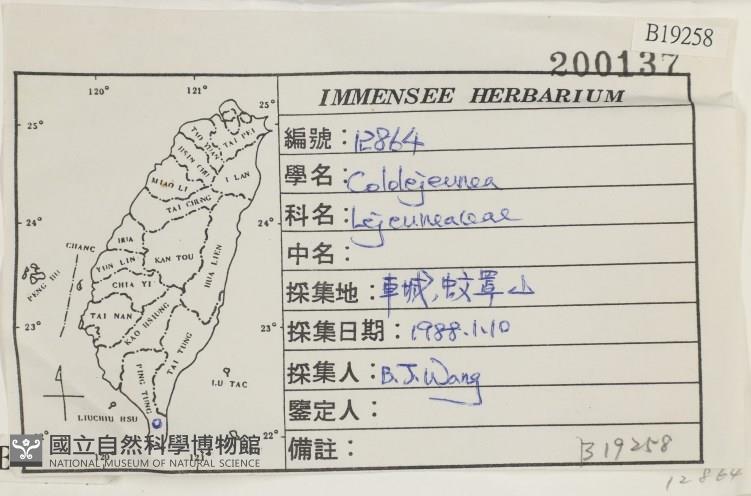 B19258
200137
IMMENSEE HERBARIUM
編號：12864
學名：Cololejeunea
科名：Lejeuneaceae
中名：
採集地：車城,蚊罩山
採集日期：1988.1.10
採集人：B.J.Wang
鑒定人：
備註：B19258
12864
120° 121°
25° 25°
TAO YUAN TAI PEI
HSIN CHU I LAN
MIAO LI
TAI CHUNG
24° 24°
CHANG HUA
YUN LIN NAN TOU HUA LIEN
PENG HU
CHIA YI
TAI NAN KAO HSIUNG
23° 23°
TAI TUNG
PING TUNG
LU TAO
LIUCHIU HSU
22°
120 121°
國立自然科學博物館
NATIONAL MUSEUM OF NATURAL SCIENCE